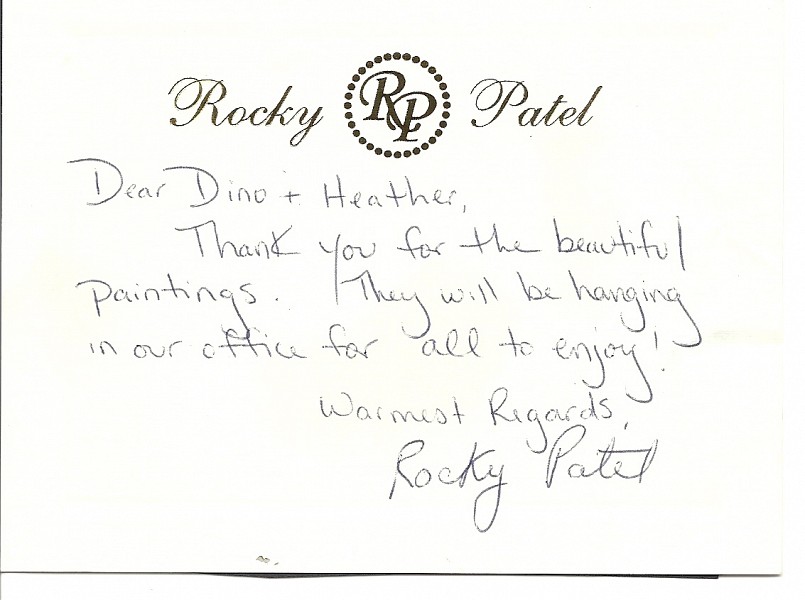 Rocky RP Patel
Dear Dino + Heather,
Thank you for the beautiful
paintings. They will be hanging
in our office for all to enjoy!
Warmest Regards,
Rocky Patel